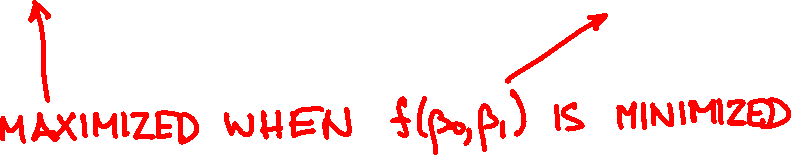 MAXIMIZED WHEN f(β₀,β₁) IS MINIMIZED